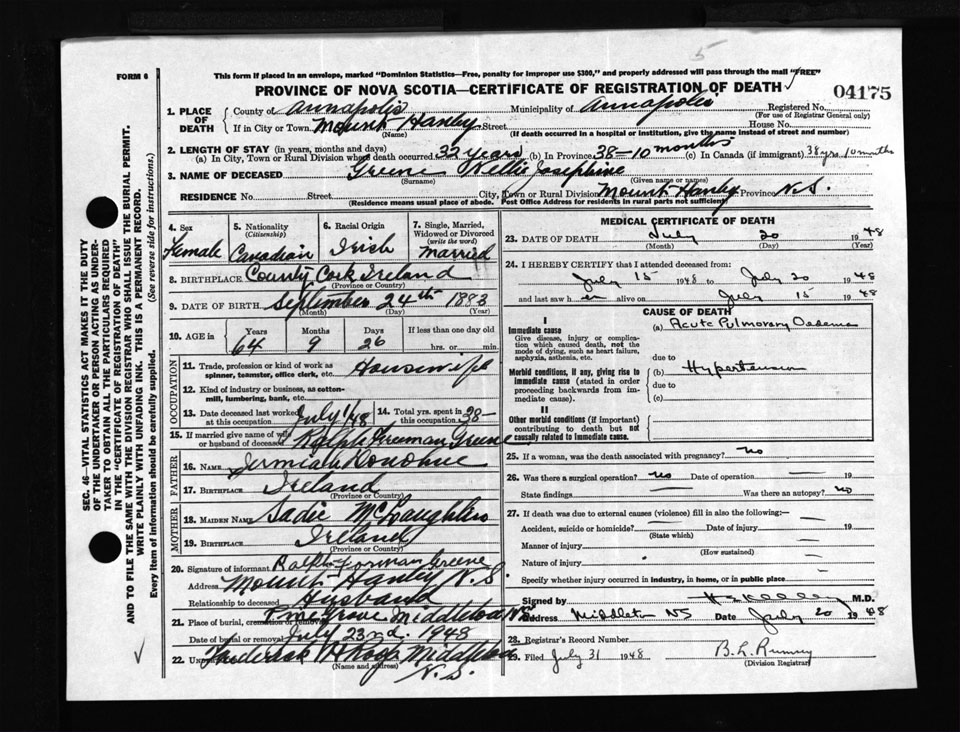 5
FORM 6
This form if placed in an envelope, marked "Dominion Statistics—Free, penalty for improper use $300," and properly addressed will pass through the mail "FREE"
PROVINCE OF NOVA SCOTIA—CERTIFICATE OF REGISTRATION OF DEATH
04175
1. PLACE OF DEATH
County of Annapolis Municipality of Annapolis Registered No.
(For use of Registrar General only)
If in City or Town Mount Hanley Street House No.
(Name) (If death occurred in a hospital or institution, give the name instead of street and number)
2. LENGTH OF STAY (in years, months and days)
(a) In City, Town or Rural Division where death occurred 32 years (b) In Province 38-10 months (c) In Canada (if immigrant) 38 yrs 10 months
3. NAME OF DECEASED Greene Nellie Josephine
(Surname) (Given name or names)
RESIDENCE No. Street City, Town or Rural Division Mount Hanley Province N.S.
(Residence means usual place of abode. Post Office Address for residents in rural parts not sufficient)
SEC. 46—VITAL STATISTICS ACT MAKES IT THE DUTY
OF THE UNDERTAKER OR PERSON ACTING AS UNDER-
TAKER TO OBTAIN ALL THE PARTICULARS REQUIRED
IN THE "CERTIFICATE OF REGISTRATION OF DEATH"
AND TO FILE THE SAME WITH THE DIVISION REGISTRAR WHO SHALL ISSUE THE BURIAL PERMIT.
WRITE PLAINLY WITH UNFADING INK. THIS IS A PERMANENT RECORD.
Every item of information should be carefully supplied. (See reverse side for instructions.)
4. Sex
Female
5. Nationality
(Citizenship)
Canadian
6. Racial Origin
Irish
7. Single, Married, Widowed or Divorced
(write the word)
Married
8. BIRTHPLACE County Cork Ireland
(Province or Country)
9. DATE OF BIRTH September 24th 1883
(Month) (Day) (Year)
10. AGE in Years Months Days If less than one day old
64 9 26 hrs. or min.
OCCUPATION
11. Trade, profession or kind of work as spinner, teamster, office clerk, etc. Housewife
12. Kind of industry or business, as cotton-mill, lumbering, bank, etc.
13. Date deceased last worked at this occupation July 1/48 14. Total yrs. spent in this occupation 38-
15. If married give name of wife or husband of deceased Ralph Freeman Greene
FATHER
16. NAME Jermiah Donohue
17. BIRTHPLACE Ireland
(Province or Country)
MOTHER
18. MAIDEN NAME Sadie McLaughlin
19. BIRTHPLACE Ireland
(Province or Country)
20. Signature of informant Ralph Forman Greene
Address Mount Hanley N.S
Relationship to deceased Husband
21. Place of burial, cremation or removal Pine Grove Middleton N.S.
Date of burial or removal July 23rd. 1948
22. Undertaker Frederick Middleton
(Name and address)
N.S.
MEDICAL CERTIFICATE OF DEATH
23. DATE OF DEATH July 20 1948
(Month) (Day) (Year)
24. I HEREBY CERTIFY that I attended deceased from:
July 15 1948 to July 20 1948
and last saw her alive on July 15 1948
CAUSE OF DEATH
I
Immediate cause
Give disease, injury or complication which caused death, not the mode of dying, such as heart failure, asphyxia, asthenia, etc.
(a) Acute Pulmonary Oedema
due to
Morbid conditions, if any, giving rise to immediate cause (stated in order proceeding backwards from immediate cause).
(b) Hypertension
due to
(c)
II
Other morbid conditions (if important) contributing to death but not causally related to immediate cause.
25. If a woman, was the death associated with pregnancy? no
26. Was there a surgical operation? no Date of operation — 19
State findings — Was there an autopsy? no
27. If death was due to external causes (violence) fill in also the following:—
Accident, suicide or homicide? Date of injury 19
(State which)
Manner of injury
(How sustained)
Nature of injury
Specify whether injury occurred in industry, in home, or in public place
Signed by M.D.
Address Middleton NS Date July 20 1948
28. Registrar's Record Number
29. Filed July 31 1948 B.L. Rumsey
(Division Registrar)